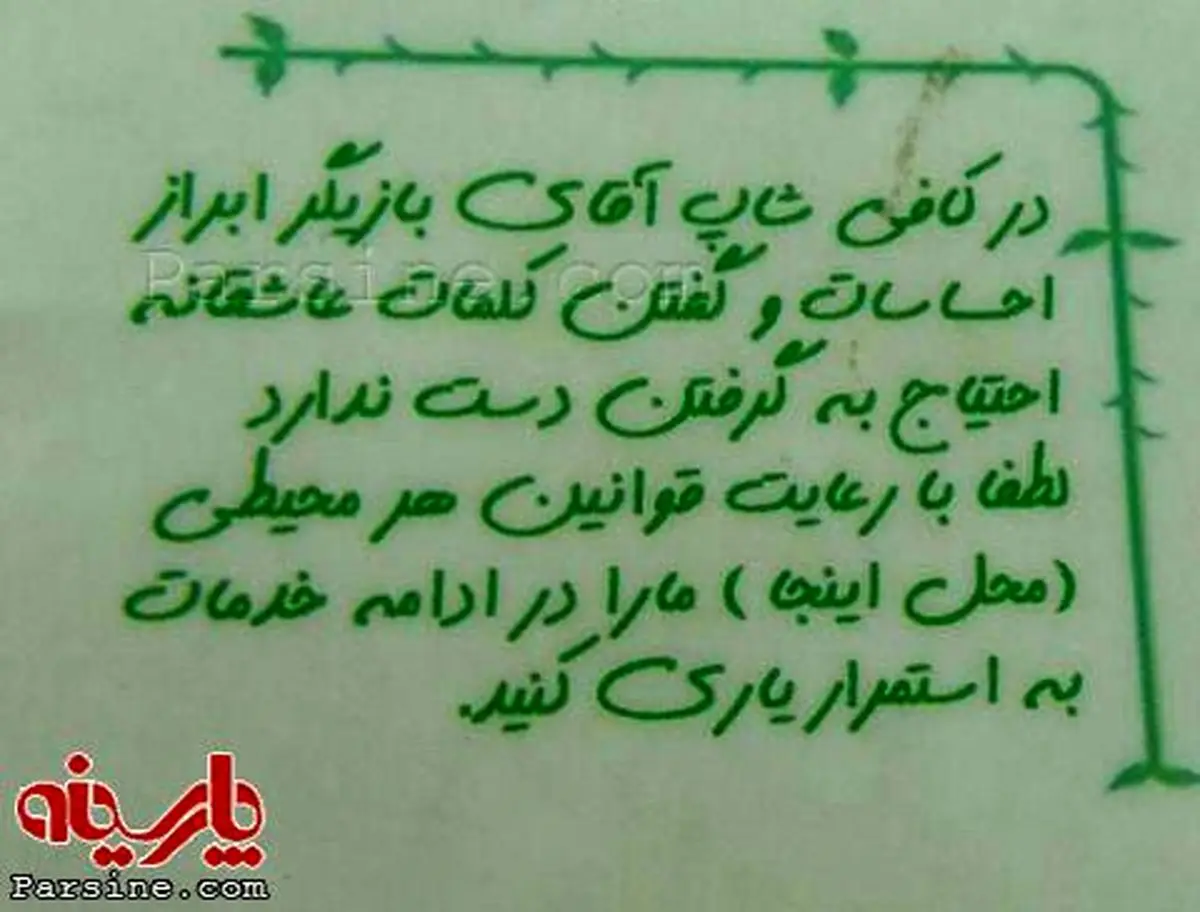 در کافی شاپ آقای بازیگر ابراز
احساسات و گفتن کلمات عاشقانه
احتیاج به گرفتن دست ندارد
لطفا با رعایت قوانین هر محیطی
(محل اینجا) ما را در ادامه خدمات
به استمرار یاری کنید.
Parsine.com
Parsine.com
پارسینه
Parsine.com